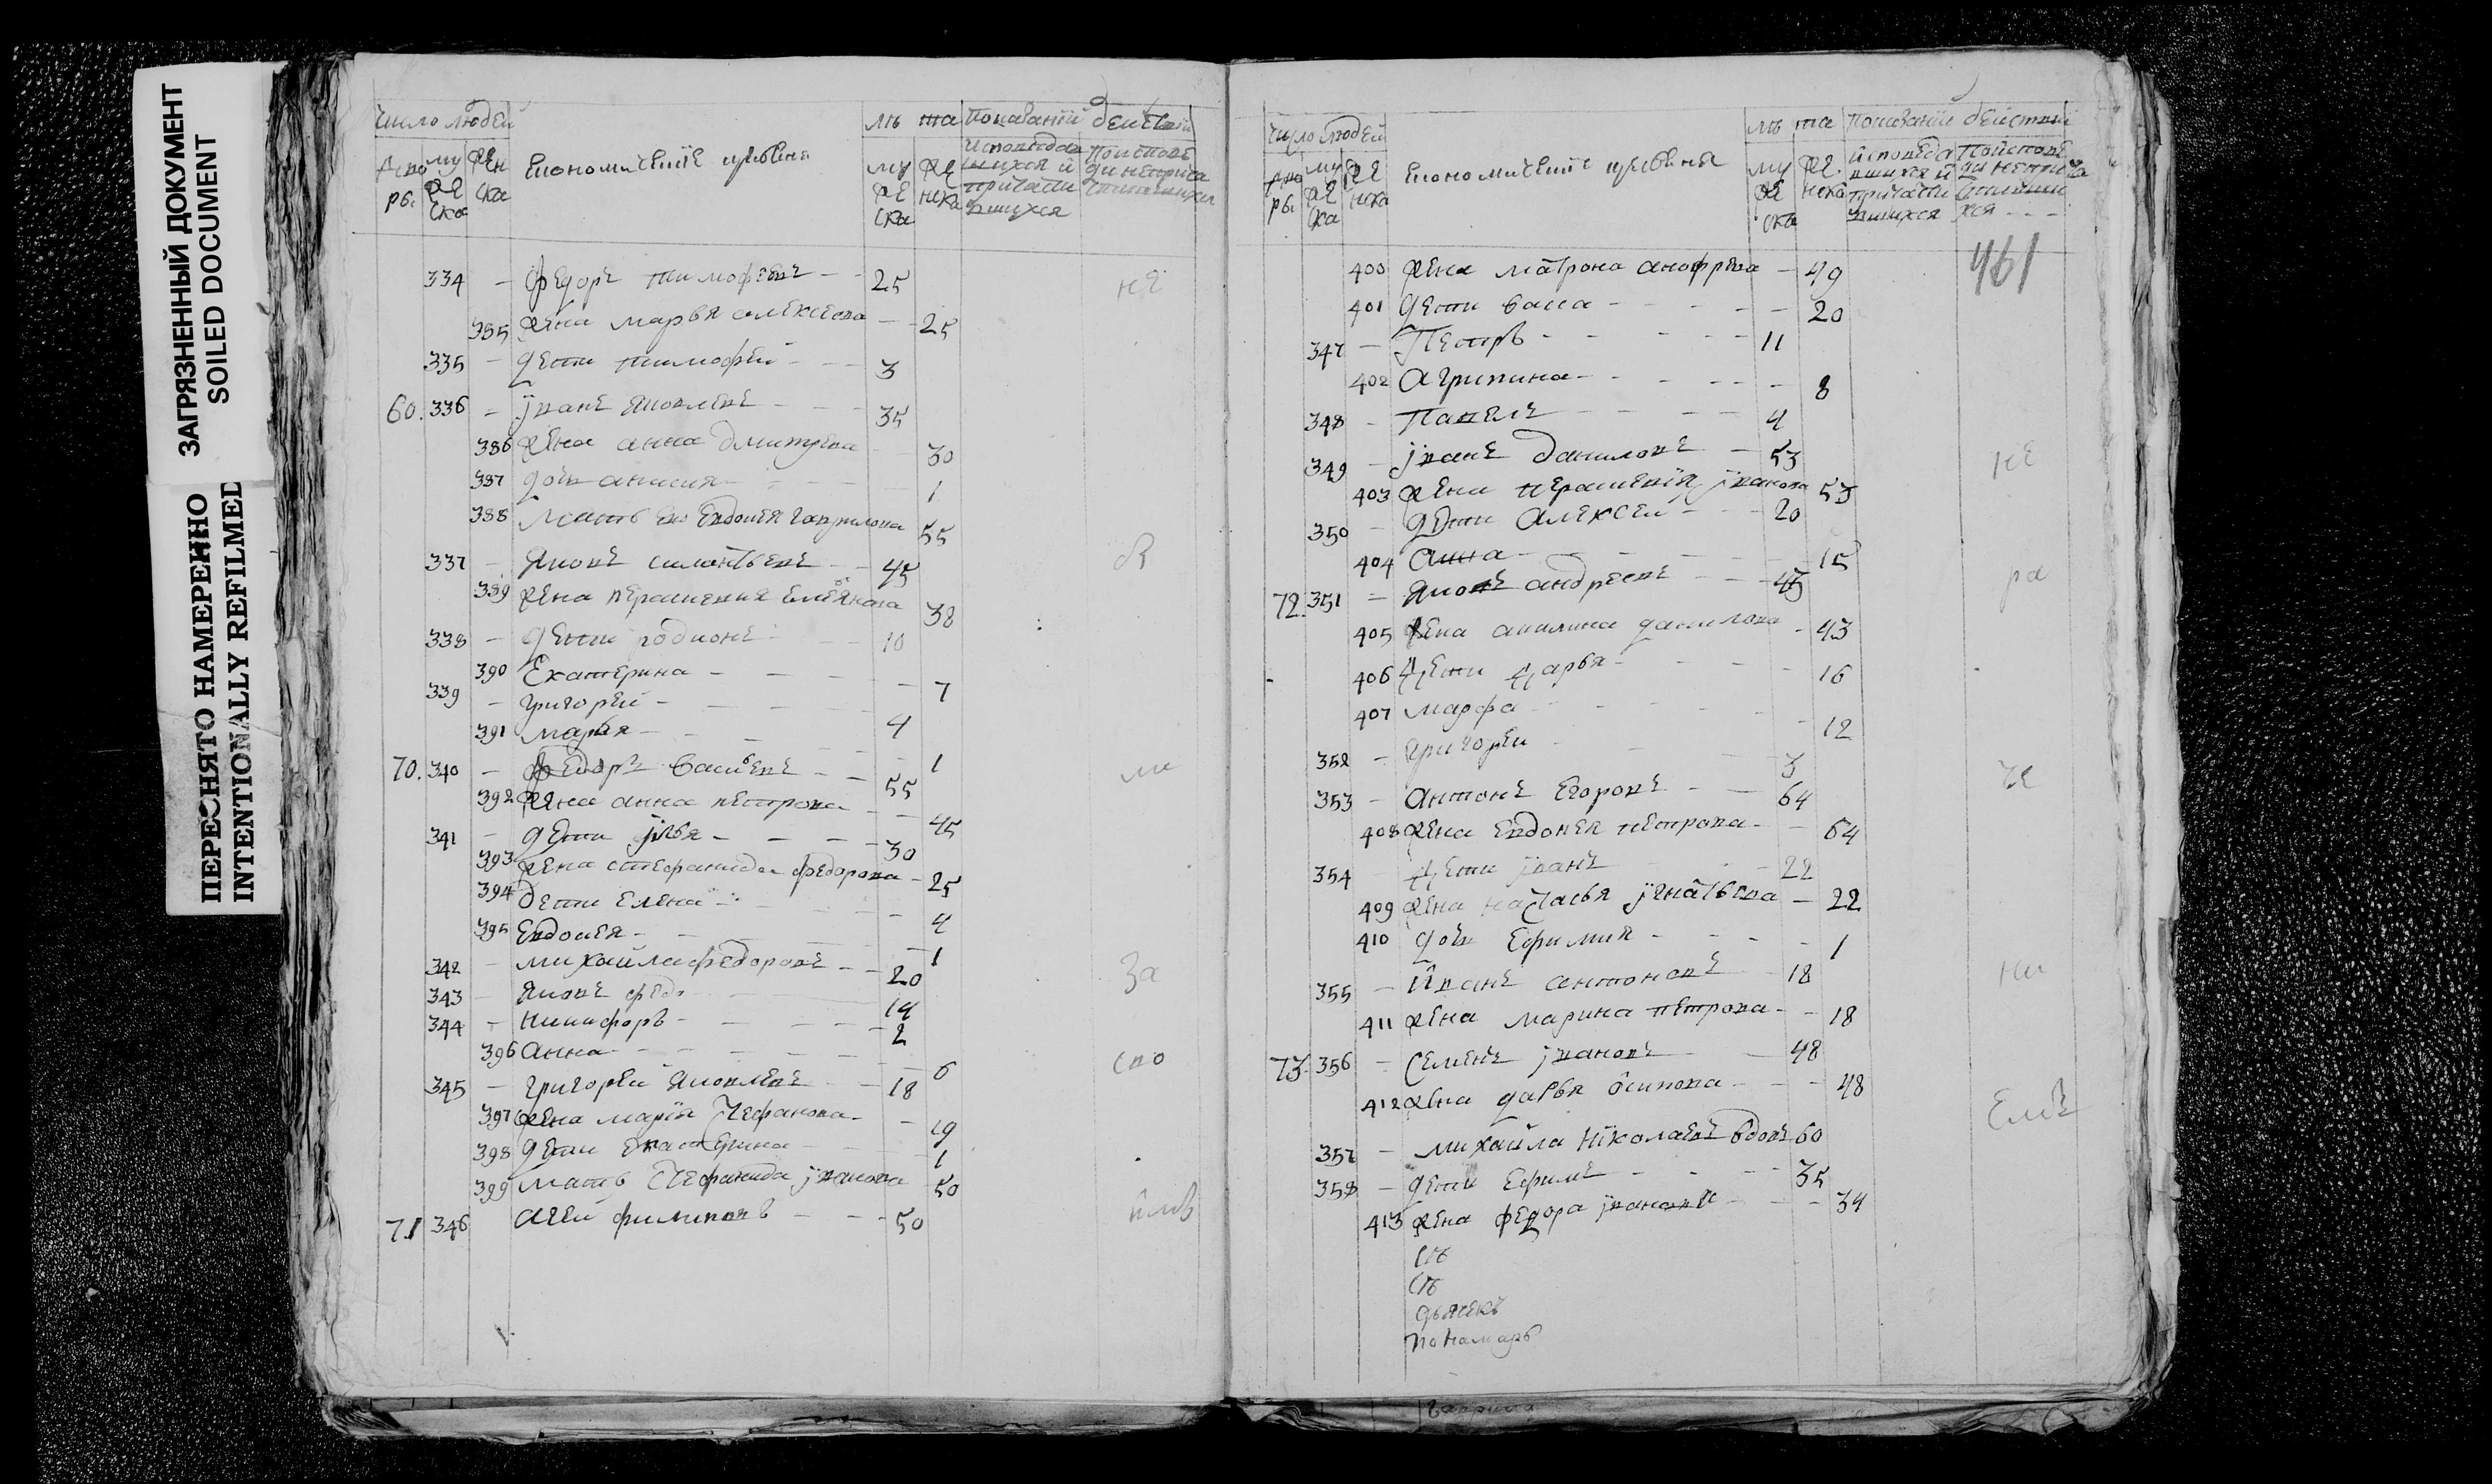 ЗАГРЯЗНЕННЫЙ ДОКУМЕНТ
SOILED DOCUMENT
ПЕРЕСНЯТО НАМЕРЕННО
INTENTIONALLY REFILMED
число людей лѣ та показаніи действъ
дво ры муже ска жен ска економические муже ска женска исповедавшихся и причастившихся
334 – федоръ тимофѣевъ – – 25 не
385 жена марья алексѣева – – 25
335 – дети тимофѣй – – – 3
60. 336 – їванъ яковлевъ – – – 35
386 жена анна дмитрева – 30
387 дочь анисия – – – 1
388 мать ево евдокея гаврилова 55
337 – яковъ силантьевъ – – 45
389 жена перасковия емельянова 38
338 – дети родионъ – – 10
390 Екатерина – – – – 7
339 – григорей – – – – 4
391 марья – – – – 1
70. 340 – федоръ васильевъ – – 55 ли
392 жена анна петрова – – 45
341 – дети їлья – – – – 30
393 жена стефанида федорова – 25
394 дети елена – – – 4
395 Евдокея – – – – 1
342 – михайла федоровъ – – 20 за
343 – яковъ – – 14
344 – никифоръ – – – – 2
396 анна – – – – – 6 сво
345 – григорей яковлевъ – – 18
397 жена марїя стефанова – – 19
398 дети екатерина – – 1
399 мать стефанида їванова 50
71 346 агей филиповъ – – – 50
число людей лѣ та показаніи действии
дво ры муже ска женска економические муже ска женска исповедавшихся и причастившихся
461
400 жена матрона анофрева – 49
401 дети васса – – – – 20
347 – Петръ – – – – – 11
402 агрипина – – – – – 8
348 – Павелъ – – – 4
349 – їванъ даниловъ – 53 не
403 жена перасковїя їванова 53
350 – дети алексѣй – – – 20
404 анна – – – – – 15
72. 351 – яковъ андреевъ – – – 45 ра
405 жена акилина данилова – 43
406 дети дарья – – – – 16
407 марфа – – – – 12
352 – григорей – – 3
353 – антонъ егоровъ – – 64 че
408 жена евдокея петрова – – 64
354 – дети їванъ – – 22
409 жена настасья їгнатьева – 22
410 дочь ефимия – – – – 1
355 – їванъ антоновъ 18 ни
411 жена марина петрова – – 18
73. 356 – семенъ ївановъ – 48
412 жена дарья осипова – – – 48
357 – михайла нїколаевъ вдовъ 60
358 – дети ефимъ – – – – 35
413 жена федора їванова – – – 34
дьячекъ
понамарь